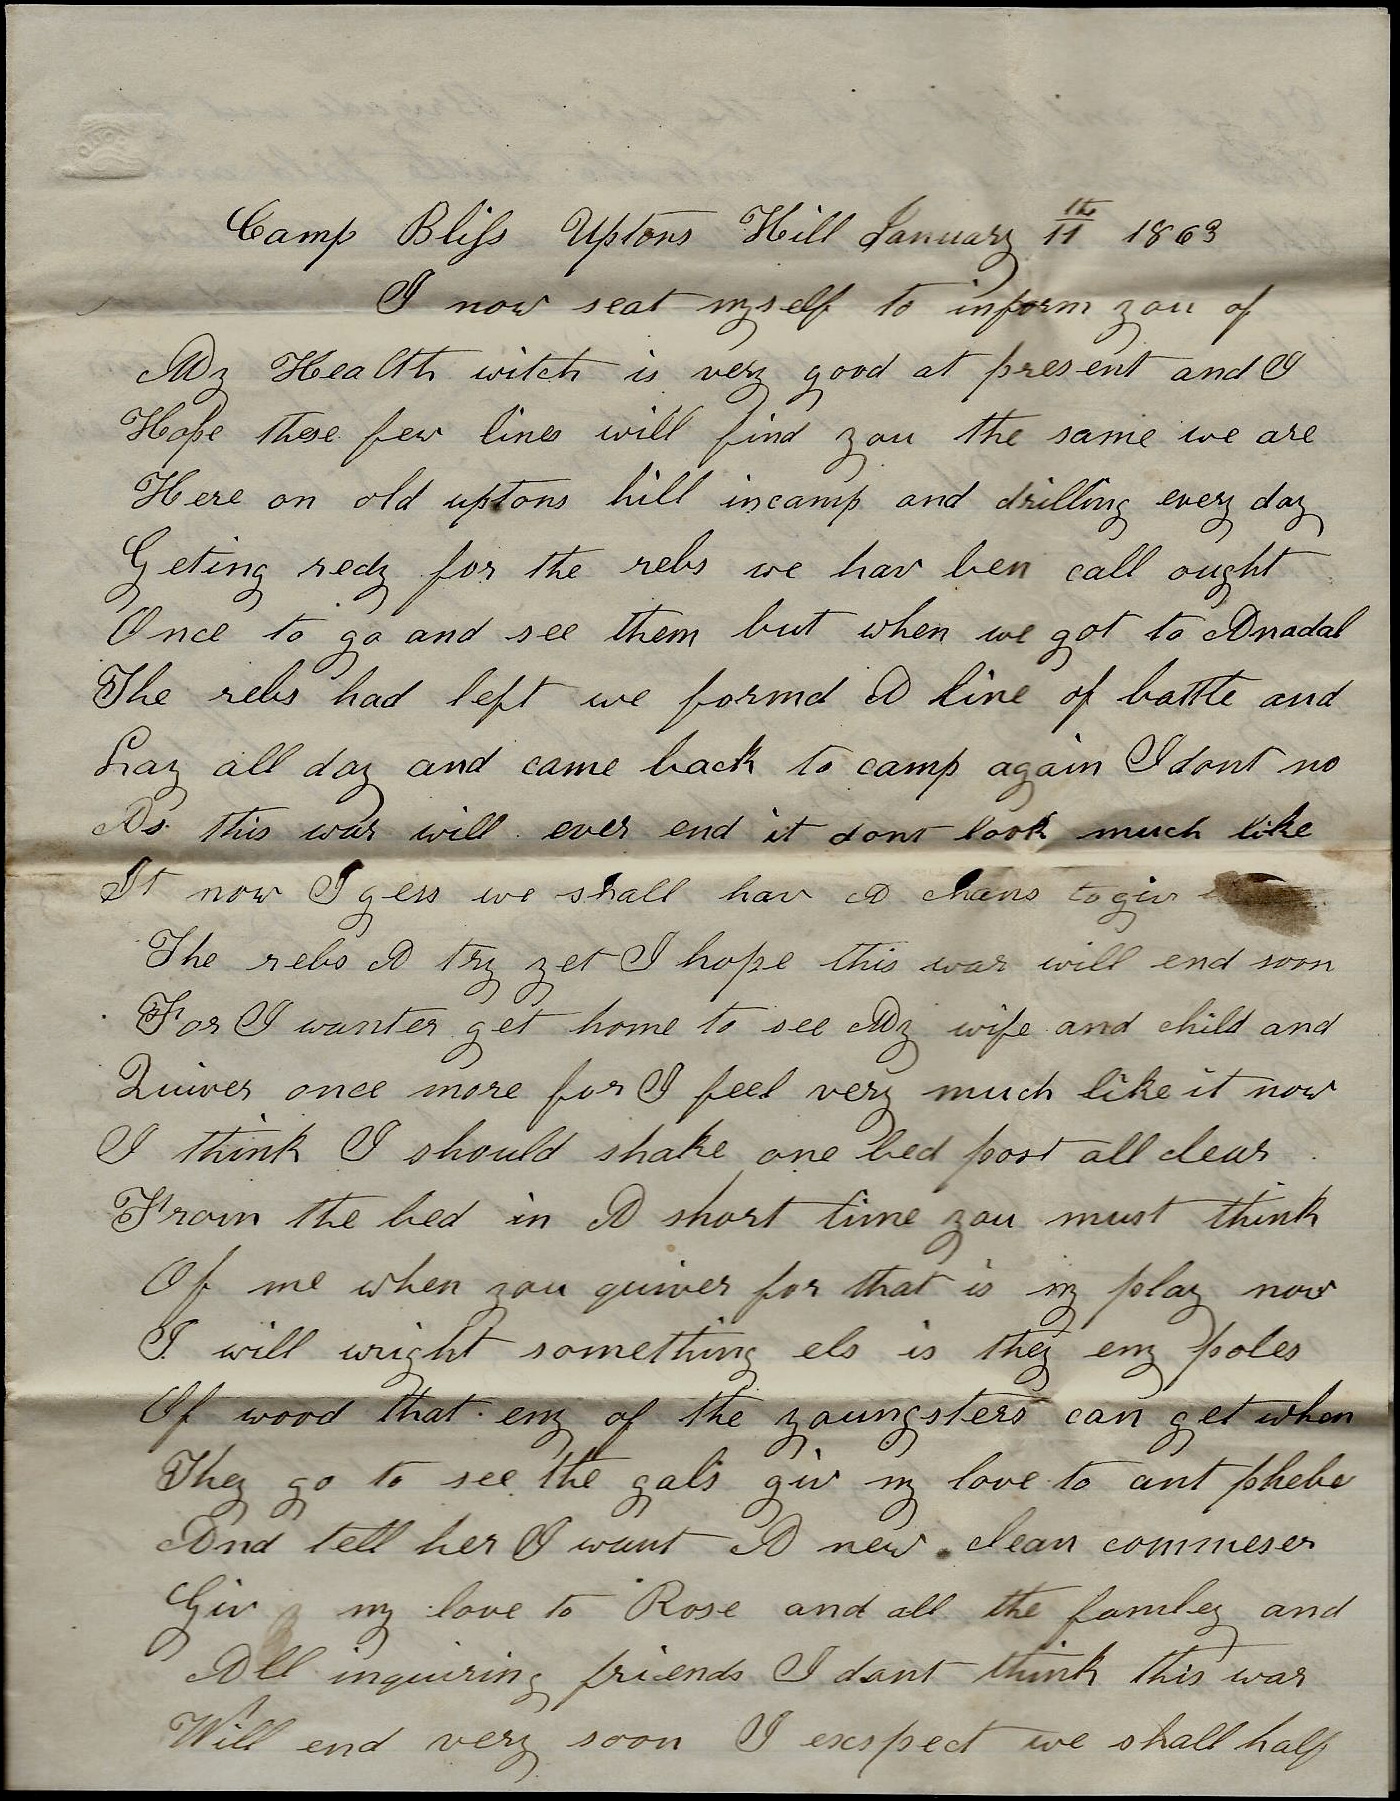 Camp Bliss Uptons Hill January 11th 1863
I now seat myself to inform you of
My Health witch is very good at present and I
Hope these few lines will find you the same we are
Here on old uptons hill incamp and drilling every day
Geting redy for the rebs we hav ben call ought
Once to go and see them but when we got to Anadal
The rebs had left we formd A line of battle and
Lay all day and came back to camp again I dont no
As this war will ever end it dont look much like
It now I gess we shall hav A chans to giv
The rebs A try yet I hope this war will end soon
For I wanter get home to see My wife and child and
Quiver once more for I feel very much like it now
I think I should shake one bed post all clear
From the bed in A short time you must think
Of me when you quiver for that is my play now
I will wright something els is they eny poles
Of wood that eny of the youngsters can get when
They go to see the gals giv my love to ant phebe
And tell her I want A new clean commeser
Giv my love to Rose and all the famley and
All inquiring friends I dont think this war
Will end very soon I exspect we shall half